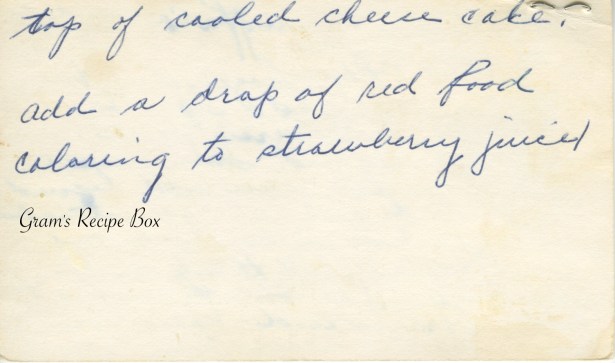 top of cooled cheese cake.
add a drop of red food
coloring to strawberry juice
Gram's Recipe Box